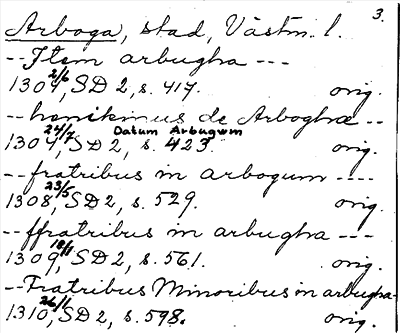 3.
Arboga, stad, Västm. l.
-- Item arbugha ---
1304 2/6, SD 2, s. 417. orig.
-- henikinus de Arboghæ --
Datum Arbugum
1304 24/7, SD 2, s. 423. orig.
-- fratribus in arbogum ----
1308 23/5, SD 2, s. 529. orig.
-- ffratribus in arbugha ---
1309 18/1, SD 2, s. 561. orig.
-- Fratribus Minoribus in arbugha-
1310 26/1, SD 2, s. 598. orig.